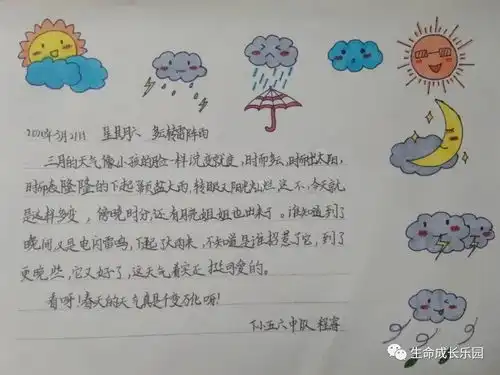 2020年3月21日 星期六 多云转雷阵雨
三月的天气像小孩的脸一样说变就变,时而多云,时而出太阳,
时而轰隆隆的下起倾盆大雨,转眼又阳光灿烂。这不,今天就
是这样多变,傍晚时分,还有月亮姐姐也出来了。谁知道到了
晚间又是电闪雷鸣,下起了大雨来,不知道是谁招惹了它,到了
更晚些,它又好了,这天气着实挺可爱的。
看呀!春天的天气真是千变万化呀!
下小五六中队 程
生命成长乐园